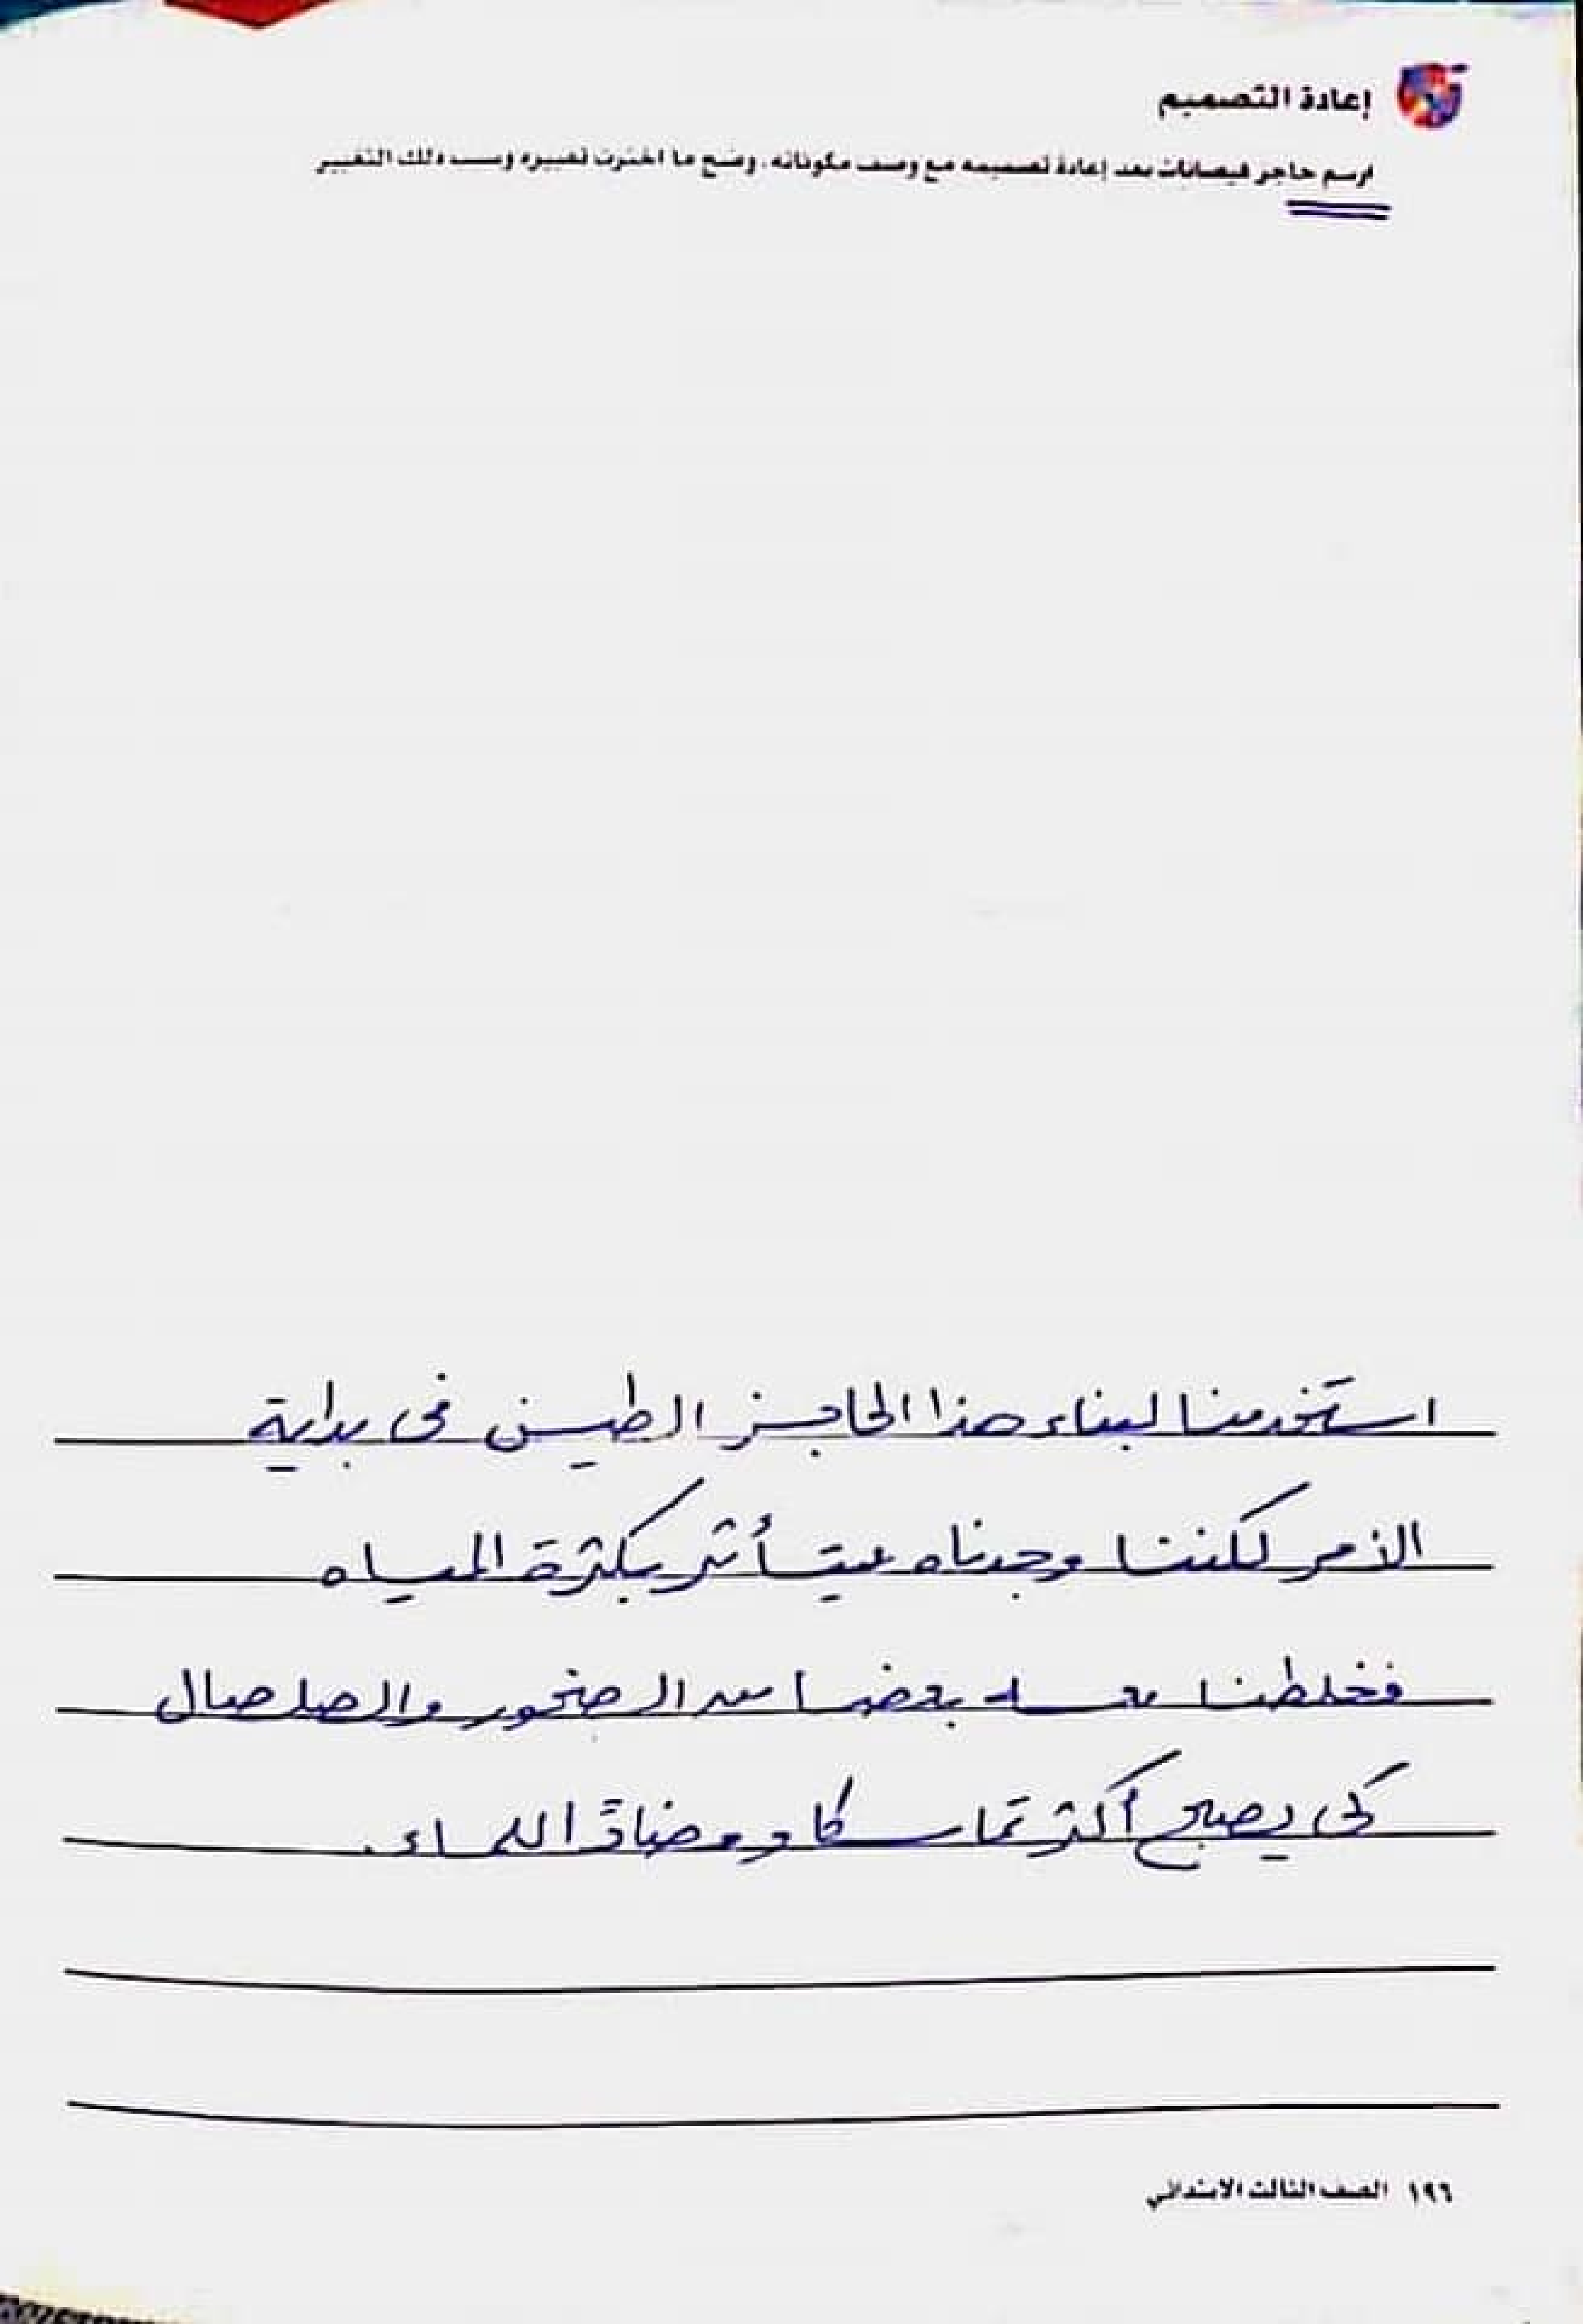 إعادة التصميم
ارسم حاجز فيضانات بعد إعادة تصميمه مع وصف مكوناته. وضح ما اخترت تغييره وسبب ذلك التغيير
استخدمنا لبناء هذا الحاجز الطين فى بداية
الأمر لكننا وجدناه يتأثر بكثرة المياه
فخلطنا معه بعضا من الصخور والصلصال
كى يصبح أكثر تماسكا ومضادًا للماء.
١٩٦ الصف الثالث الابتدائي